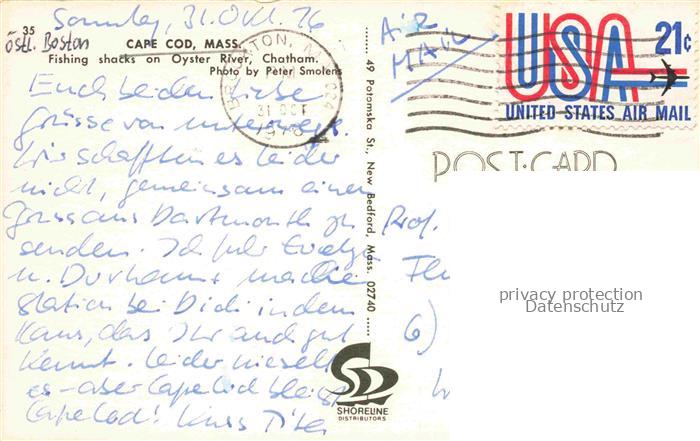 Sonntag, 31. Okt. 76
35
östl. Boston
CAPE COD, MASS.
Fishing shacks on Oyster River, Chatham.
Photo by Peter Smolens
31 OCT
Euch beiden liebe
Grüsse von unterwegs.
Wir schafften es leider
nicht, gemeinsam einen
Gruss aus Dartmouth zu
senden. Ich fuhr
u. Durham + mache
Station bei Didi in dem
Haus, das Ihr auch gut
kennt. Leider nieselt
es - aber Cape Cod bleibt
Cape Cod! Kuss
49 Potomska St., New Bedford, Mass. 02740
SHORELINE
DISTRIBUTORS
AIR
MAIL
USA 21c
UNITED STATES AIR MAIL
POST CARD
Prof.
6)
privacy protection
Datenschutz